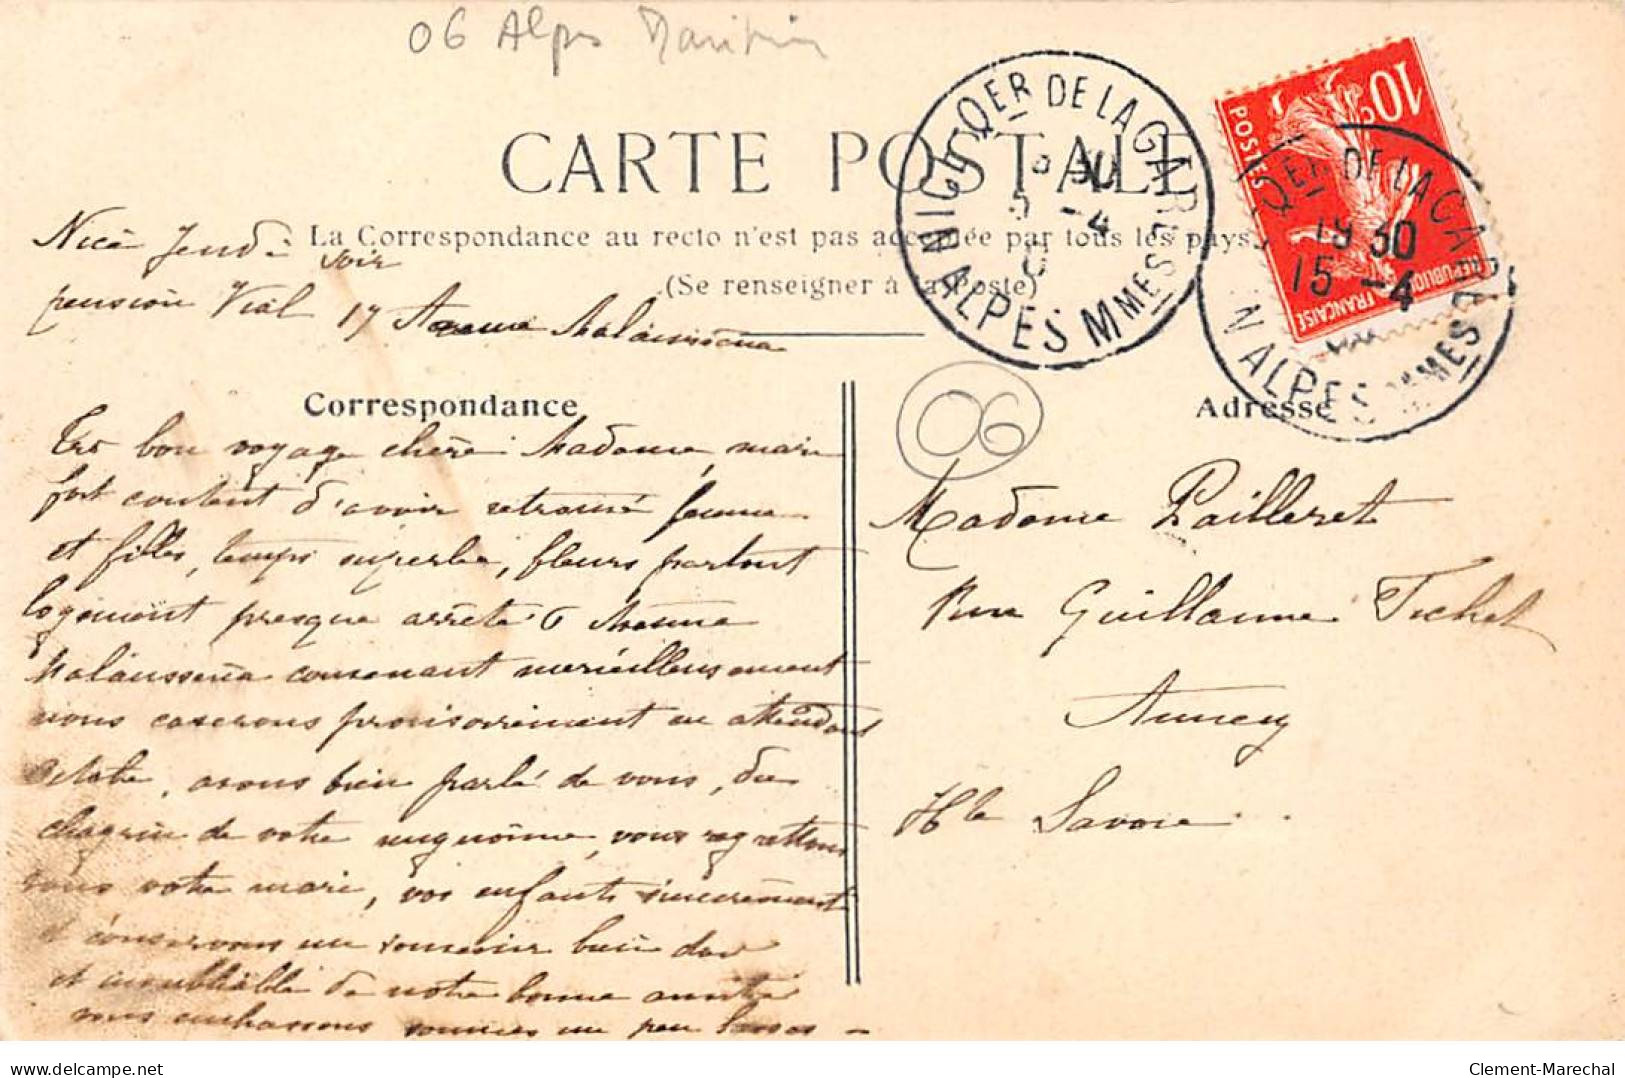 06 Alpes Maritim
CARTE POSTALE
La Correspondance au recto n'est pas acceptée par tous les pays
(Se renseigner à la Poste)
NICE QER DE LA GARE
30
5 -4
ALPES MMES
10c
POSTES
REPUBLIQUE FRANÇAISE
QER DE LA GARE
19 30
15 -4
N ALPES MMES
Nice Jeudi soir
pension Vial 17 Avenue Malaussena
Correspondance
Adresse
06
Très bon voyage chère Madame, mari
fort content d'avoir retrouvé femme
et filles, temps superbe, fleurs partout
logement presque arrêté 6 Avenue
Malaussena convenant merveilleusement
nous caserons provisoirement en attendant
octobre, avons bien parlé de vous, du
chagrin de votre mignonne, vous regrettons
vous votre mari, vos enfants sincèrement
et conservons un souvenir bien doux
et inoubliable de notre bonne amitié
vous embrassons sommes un peu lasses -
Madame Pailleret
Rue Guillaume Fichet
Annecy
Hte Savoie
delcampe.net
Clement-Marechal